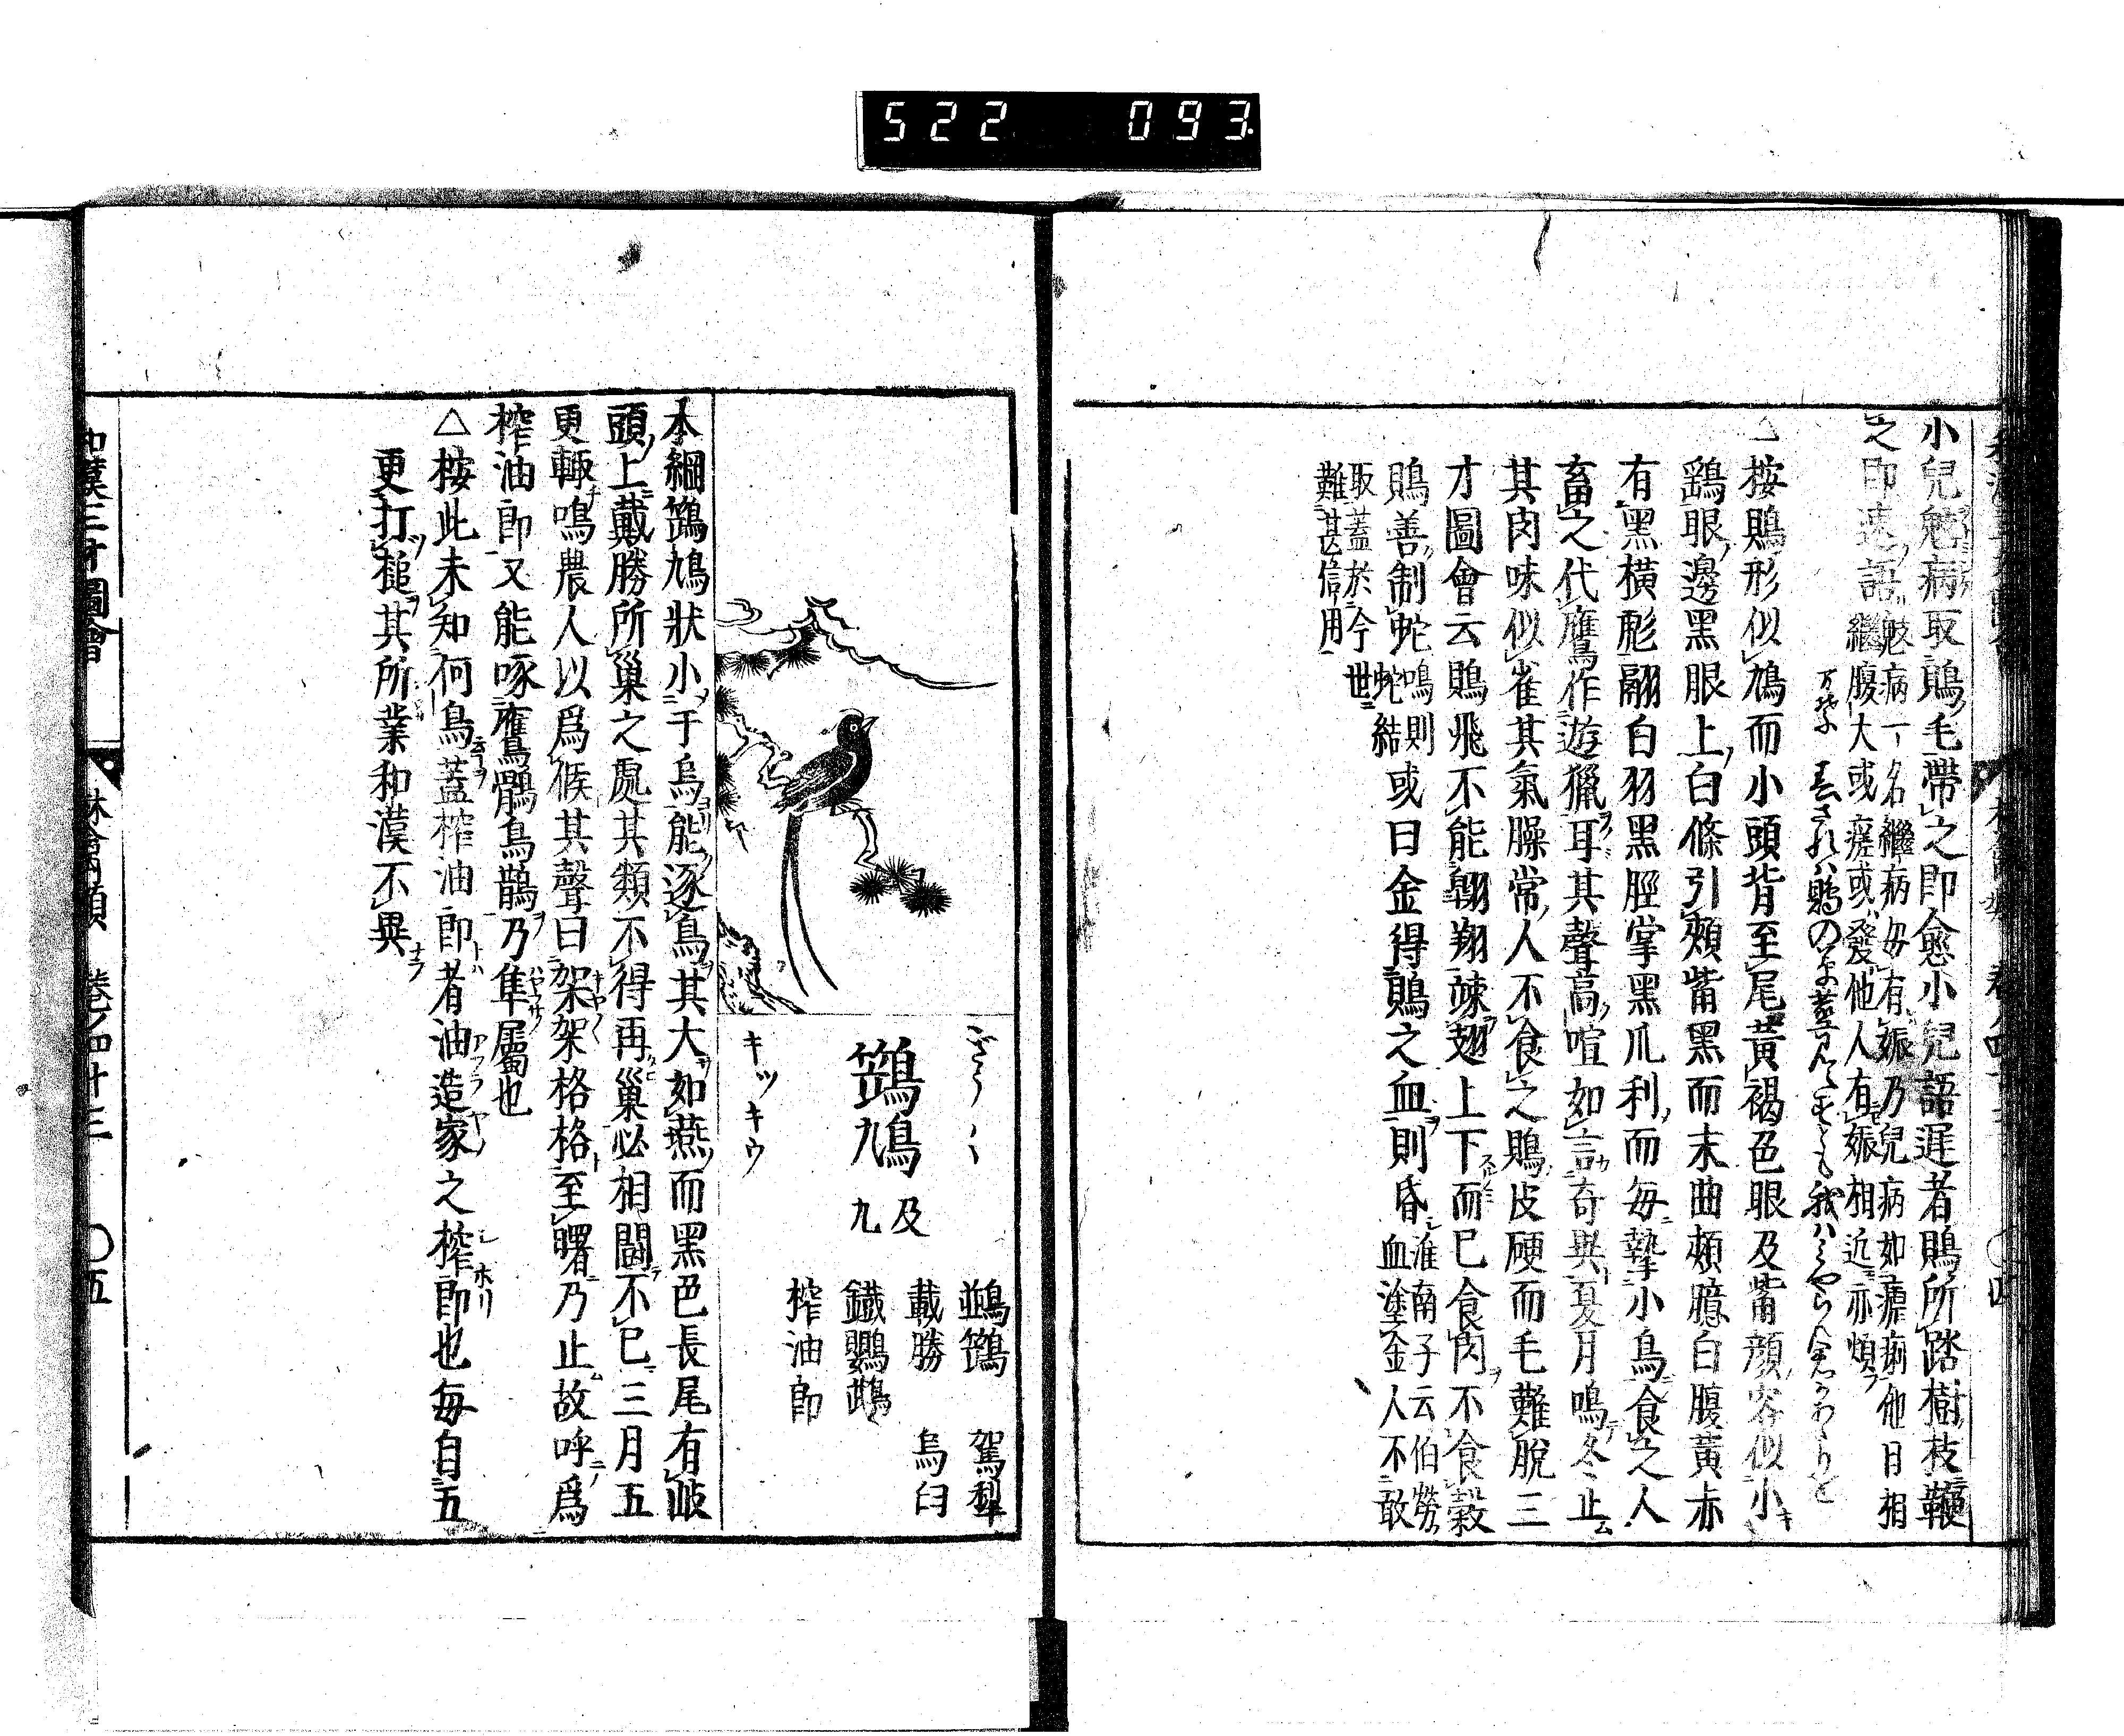 522 093
小兒魃病取鵙毛帶之即愈小兒語遲者鵙所踏樹枝鞭
之即速語
魃病一名繼病毎有娠乃兒病如瘧痢他日相
繼腹大或瘥或發他人有娠相近亦煩
万葉 春されは鵙の草
△按鵙形似鳩而小頭背至尾黃褐色眼及觜顔容似小
鷂眼邊黑眼上白條引頰觜黑而末曲頰臆白腹黃赤
有黑橫彪翮白羽黑脛掌黑爪利而毎摯小鳥食之人
畜之代鷹作遊獵耳其聲高喧如言奇異夏月鳴冬止
其肉味似雀其氣臊常人不食之鵙皮硬而毛難脫三
才圖會云鵙飛不能翺翔竦翅上下而已食肉不食穀
鵙善制蛇
鳴則
蛇結
或曰金得鵙之血則昏
淮南子云伯勞
血塗金人不敢
取蓋於今世
難甚信用
キツキウ
鵖鳩
及
九
駕犂
載勝
烏臼
榨油郎
本綱鵖鳩狀小于烏能逐烏其大如燕而黑色長尾有岐
頭上戴勝所巢之處其類不得再巢必相鬪不已三月五
更輙鳴農人以爲候其聲曰架架格格至曙乃止故呼爲
榨油郎又能啄鷹鶻烏鵲乃隼屬也
△按此未知何鳥蓋榨油郎者油造家之榨郎也毎自五
更打槌其所業和漢不異
和漢三才圖會
林禽類
卷ノ四十三
〇五